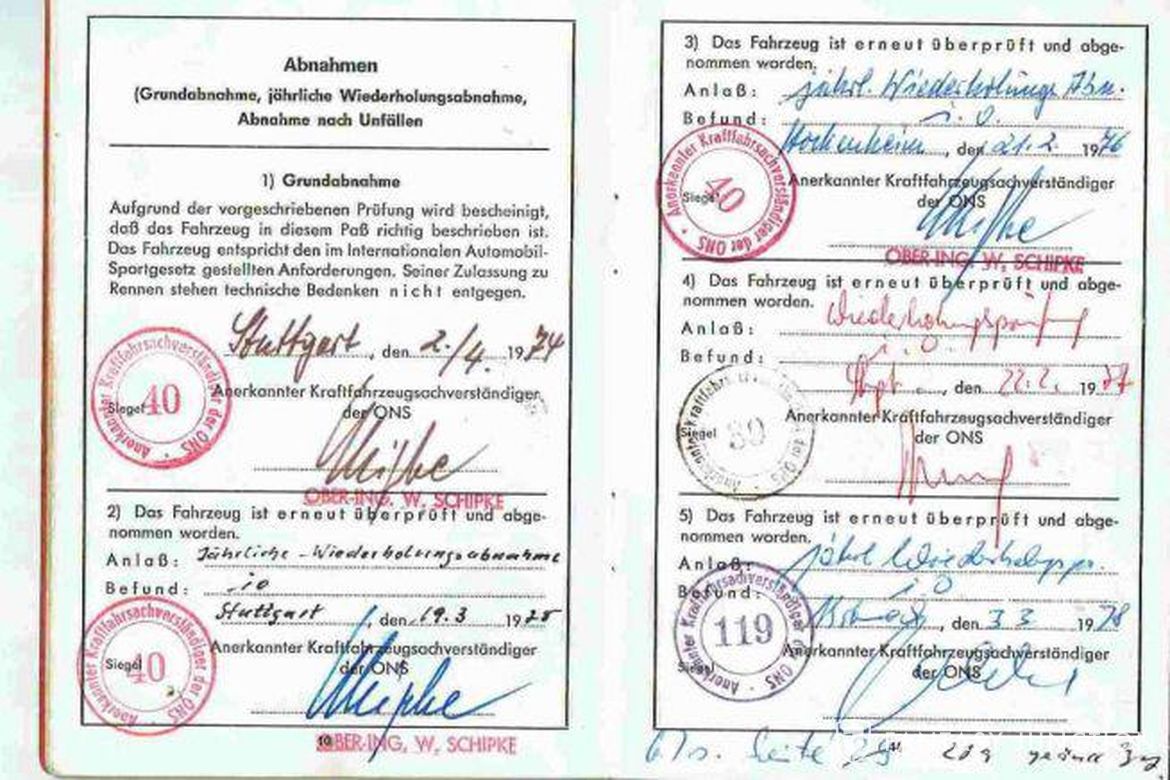 Abnahmen
(Grundabnahme, jährliche Wiederholungsabnahme,
Abnahme nach Unfällen
1) Grundabnahme
Aufgrund der vorgeschriebenen Prüfung wird bescheinigt,
daß das Fahrzeug in diesem Paß richtig beschrieben ist.
Das Fahrzeug entspricht den im Internationalen Automobil-
Sportgesetz gestellten Anforderungen. Seiner Zulassung zu
Rennen stehen technische Bedenken nicht entgegen.
Stuttgart, den 2./4. 1974
Anerkannter Kraftfahrzeugsachverständiger
der ONS
Siegel
Anerkannter Kraftfahrsachverständiger der ONS
40
OBER-ING. W. SCHIPKE
2) Das Fahrzeug ist erneut überprüft und abge-
nommen worden.
Anlaß: Jährliche-Wiederholungsabnahme
Befund: io
Stuttgart, den 19.3 1975
Anerkannter Kraftfahrzeugsachverständiger
der ONS
Siegel
Anerkannter Kraftfahrsachverständiger der ONS
40
OBER-ING. W. SCHIPKE
10
3) Das Fahrzeug ist erneut überprüft und abge-
nommen worden.
Anlaß: jährl. Wiederholungs Abn.
Befund: i. O.
Hockenheim, den 21.2. 1976
Anerkannter Kraftfahrzeugsachverständiger
der ONS
Siegel
Anerkannter Kraftfahrsachverständiger der ONS
40
OBER-ING. W. SCHIPKE
4) Das Fahrzeug ist erneut überprüft und abge-
nommen worden.
Anlaß: Wiederholungsprüfung
Befund: i. O.
, den 22.2. 1977
Anerkannter Kraftfahrzeugsachverständiger
der ONS
Siegel
5) Das Fahrzeug ist erneut überprüft und abge-
nommen worden.
Anlaß: jährl Wiederholungspr.
Befund: i O
, den 3 3 1978
Anerkannter Kraftfahrzeugsachverständiger
der ONS
Siegel
Anerkannter Kraftfahrsachverständiger der ONS
119
Seite